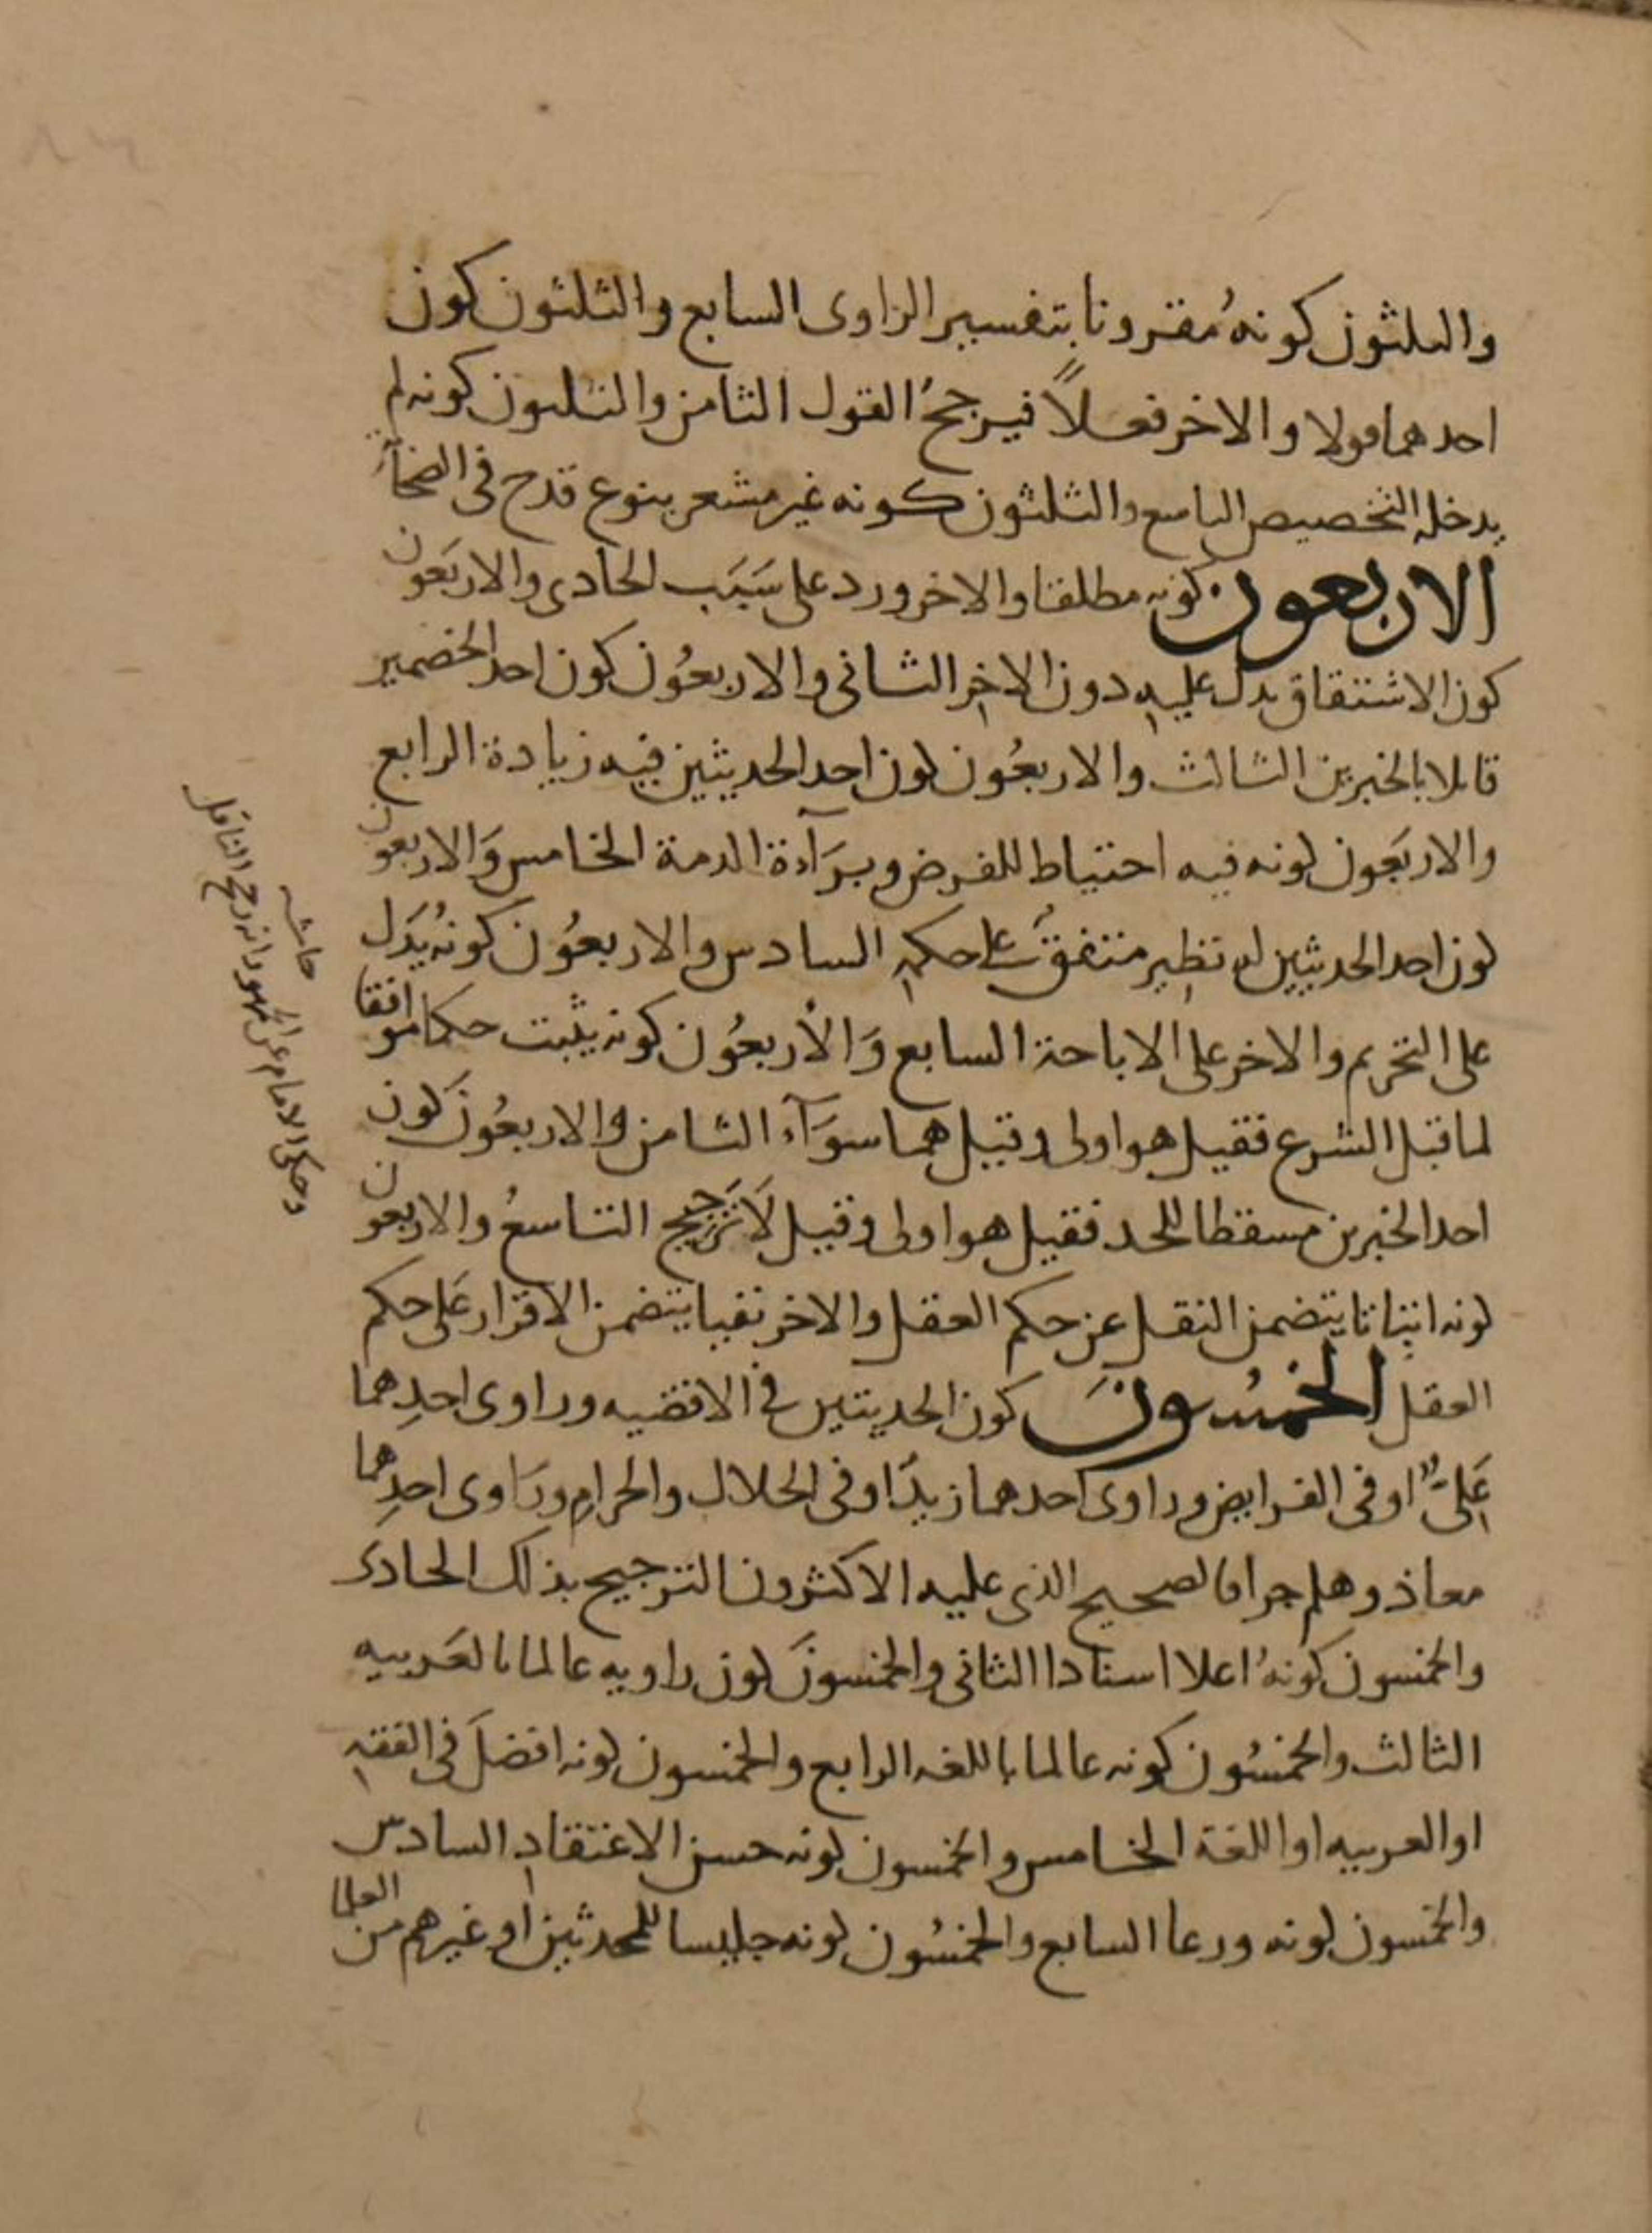 والثلثون كونهُ مقترونا بتفسير الراوى السابع والثلثون كون
احدهما قولا والاخر فعلاً فيرجحُ القول الثامن والثلثون كونه لم
يدخله التخصيص التاسع والثلثون كونه غير مشعر بنوع قدح فى الصحابة
الاربعون كونه مطلقا والاخر ورد على سَبَب الحادى والاربَعون
كون الاشتقاق يدل عليه دون الاخر الثانى والاربعُون كون احد الخصمين
قائلا بالخبرين الثالث والاربعُون كون احد الحديثين فيه زيادة الرابع
والاربَعون كونه فيه احتياط للفرض وبرَآءة الذمة الخامس وَالاربعون
كون احد الحديثين له نظير متفقٌ على حكمه السادس والاربعُون كونهُ يَدل
على التحريم والاخر على الاباحة السابع وَالاربعُون كونه يثبت حكما موافقا
لما قبل الشرع فقيل هو اولى وقيل هما سوَآء الثامن والاربعُون كون
احد الخبرين مسقطا للحد فقيل هو اولى وقيل لَا تَرجيح التاسعُ والاربعون
كونه اثباتا يتضمن النقل عن حكم العقل والاخر نفيا يتضمن الاقرار عَلى حكم
العقل الخمسُونَ كون الحديثين فى الاقضيه وراوى احدِهما
عَلىٌّ او فى الفرايض وراوى احدهما زيدًا وفى الحلال والحرامِ ورَاوى احدِهما
معاذ وهلم جرا فالصحيح الذى عليه الاكثرون الترجيح بذلك الحادى
والخمسون كونهُ اعلا اسنادا الثانى والخمسونَ كون راويه عالما بالعَربيه
الثالث والخمسُون كونه عالما باللغه الرابع والخمسون كونه افضلَ فى الفقهِ
او العربيه او اللغة الخامس والخمسون كونه حسن الاعتقادِ السادس
والخمسون كونه ورعا السابع والخمسُون كونه جليسا للمحدثين او غيرهم من العلما
حاشيه
وحكى الامام عن الجمهور انه رجح الناقل